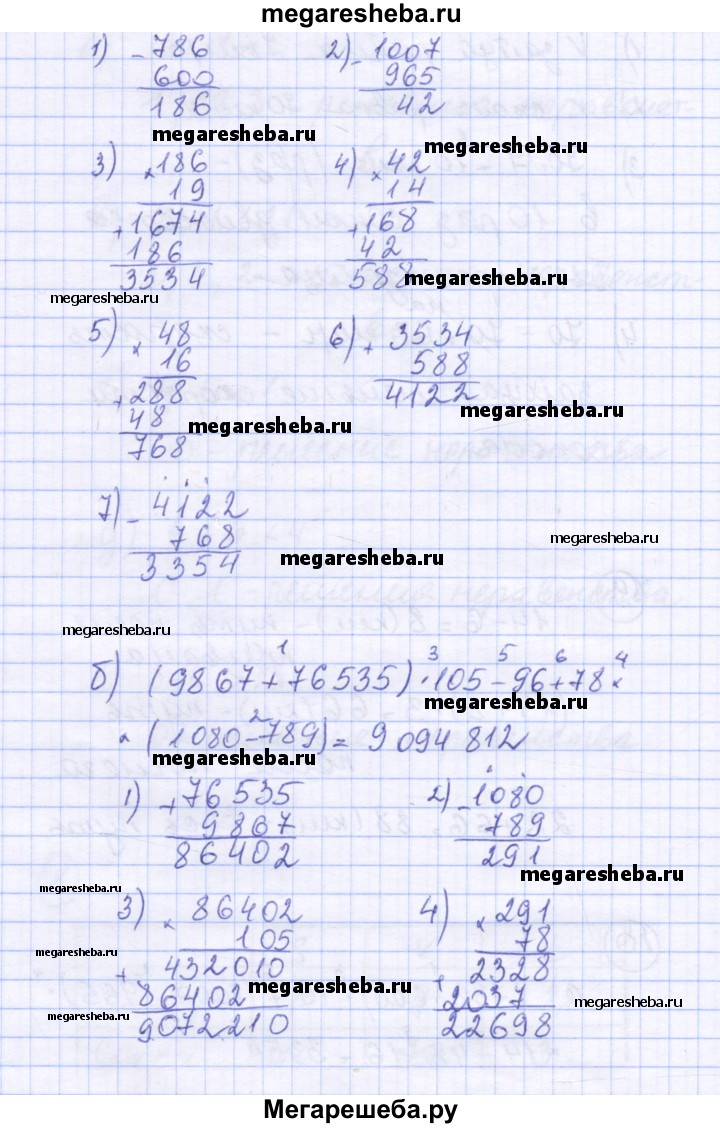 megaresheba.ru
1) - 786 2) - 1007
600 965
186 42
megaresheba.ru megaresheba.ru
3) × 186 4) × 42
19 14
+ 1674 + 168
186 42
3534 588
megaresheba.ru megaresheba.ru
5) × 48 6) + 3534
16 588
+ 288 4122
48
768
megaresheba.ru megaresheba.ru
7) - 4122
768
3354
megaresheba.ru megaresheba.ru
megaresheba.ru
1 3 5 6 4
б) (9867+76535)·105-96+78×
2
× (1080-789)= 9 094 812
megaresheba.ru megaresheba.ru
1) + 76535 2) - 1080
9867 789
86402 291
megaresheba.ru megaresheba.ru
3) × 86402 4) × 291
105 78
+ 432010 + 2328
86402 2037
9072210 22698
megaresheba.ru megaresheba.ru megaresheba.ru
megaresheba.ru
Мегарешеба.ру